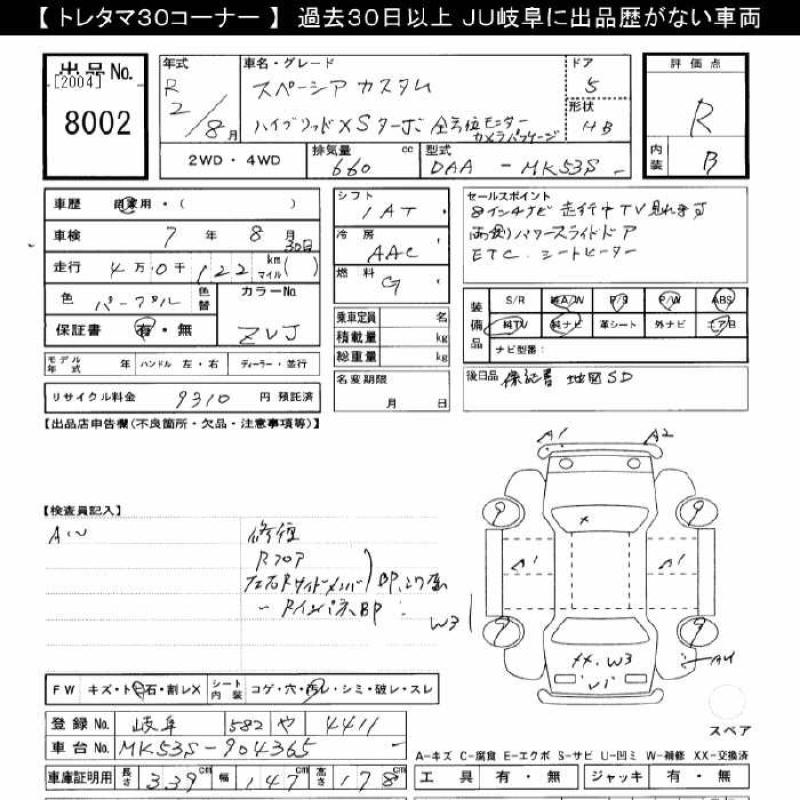 【 トレタマ30コーナー 】 過去30日以上 JU岐阜に出品歴がない車両
出品 No.
[2004]
8002
年式
R
2/8月
車名・グレード
スペーシア カスタム
ハイブリッド XSターボ 全方位モニター
カメラパッケージ
ドア
5
形状
HB
評価点
R
内装
B
2WD・4WD
排気量
660 cc
型式
DAA - MK53S
車歴 自家用・( )
車検 7年 8月
30日
走行 4万0千122 km マイル( )
色 パープル 色替
カラーNo
ZVJ
保証書 有・無
モデル年式 年 ハンドル 左・右 ディーラー・並行
リサイクル料金 9310 円 預託済
シフト
IAT
冷房
AAC
燃料
G
乗車定員 名
積載量 kg
総重量 kg
名変期限
月 日
セールスポイント
8インチナビ 走行中TV見れます
両側パワースライドドア
ETC. シートヒーター
装備品
S/R 純A/W P/S P/W ABS
純TV 純ナビ 革シート 外ナビ エアB
ナビ型番:
後日品 保証書 地図SD
【出品店申告欄(不良箇所・欠品・注意事項等)】
【検査員記入】
修復
Rフロア
左右Rサイドメンバー
BP
A1 A2
9 9
A1 A1
9 9
W3
XX.W3
FW キズ・ト石・割レX シート内装 コゲ・穴・汚レ・シミ・破レ・スレ
登録 No. 岐阜 582 や 4411
車台 No. MK53S-904365
車庫証明用 長さ 339cm 幅 147cm 高さ 178cm
スペア
A-キズ C-腐食 E-エクボ S-サビ U-凹ミ W-補修 XX-交換済
工具 有・無 ジャッキ 有・無